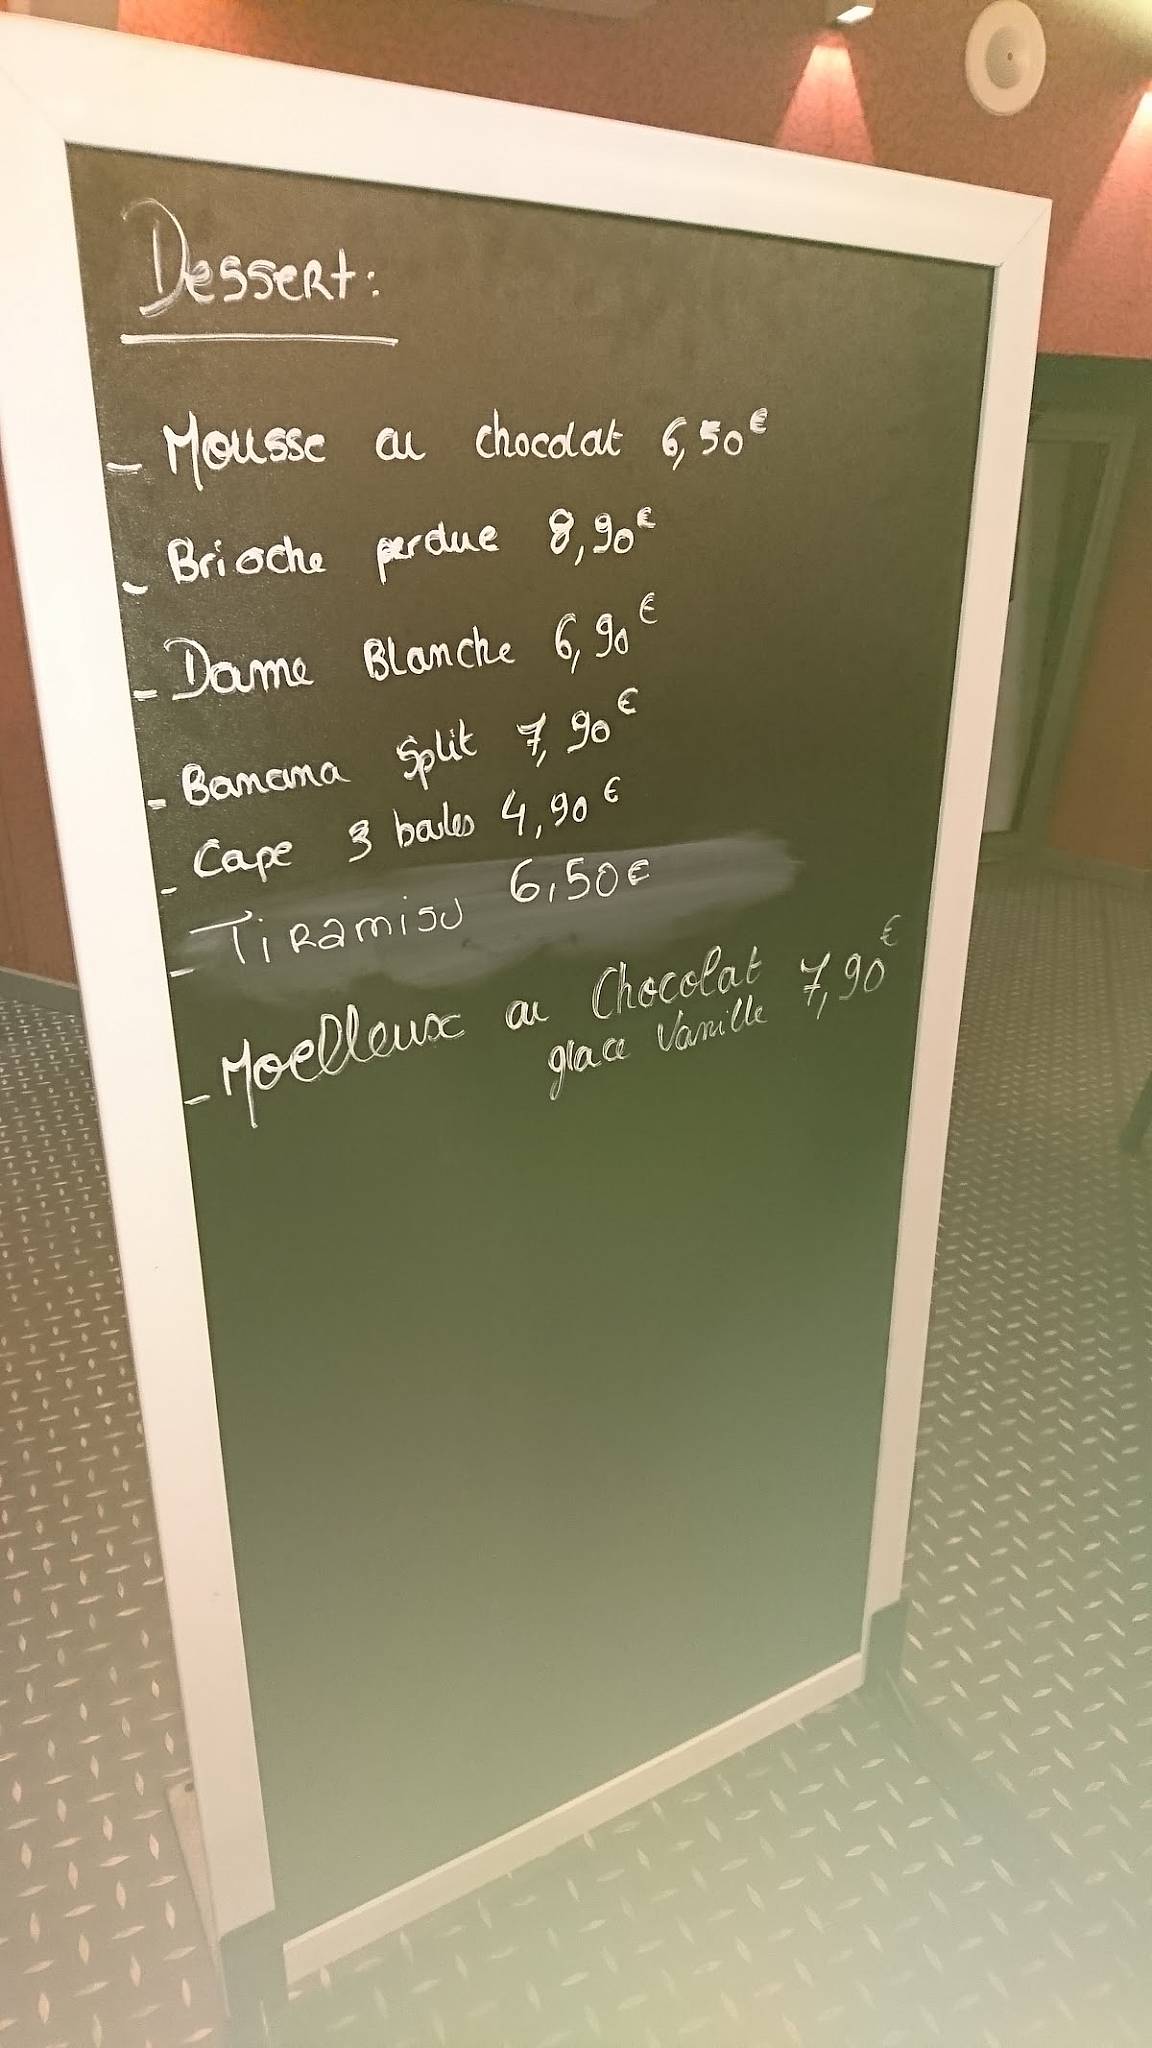 Dessert:
- Mousse au chocolat 6,50€
- Brioche perdue 8,90€
- Dame Blanche 6,90€
- Banana Split 7,90€
- Cape 3 boules 4,90€
- Tiramisu 6,50€
- Moelleux au Chocolat 7,90€
glace Vanille